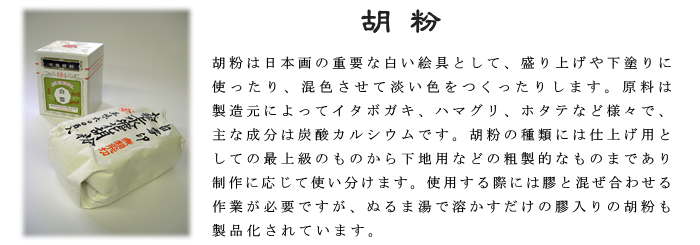 胡粉
胡粉は日本画の重要な白い絵具として、盛り上げや下塗りに
使ったり、混色させて淡い色をつくったりします。原料は
製造元によってイタボガキ、ハマグリ、ホタテなど様々で、
主な成分は炭酸カルシウムです。胡粉の種類には仕上げ用と
しての最上級のものから下地用などの粗製的なものまであり
制作に応じて使い分けます。使用する際には膠と混ぜ合わせる
作業が必要ですが、ぬるま湯で溶かすだけの膠入りの胡粉も
製品化されています。